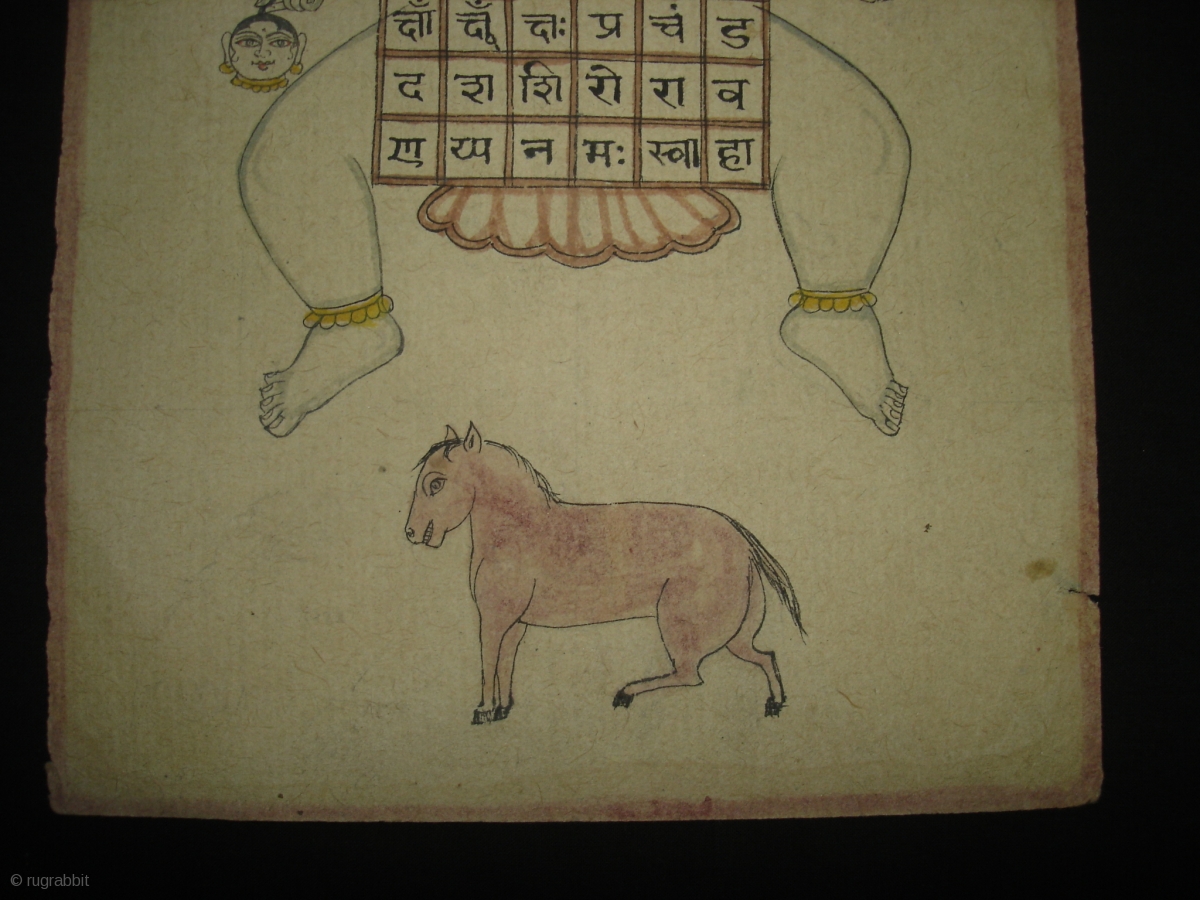 क्षाँ क्षूँ क्षः प्र चं ड
द श शि रो रा व
ण य्य न मः स्वा हा
© rugrabbit